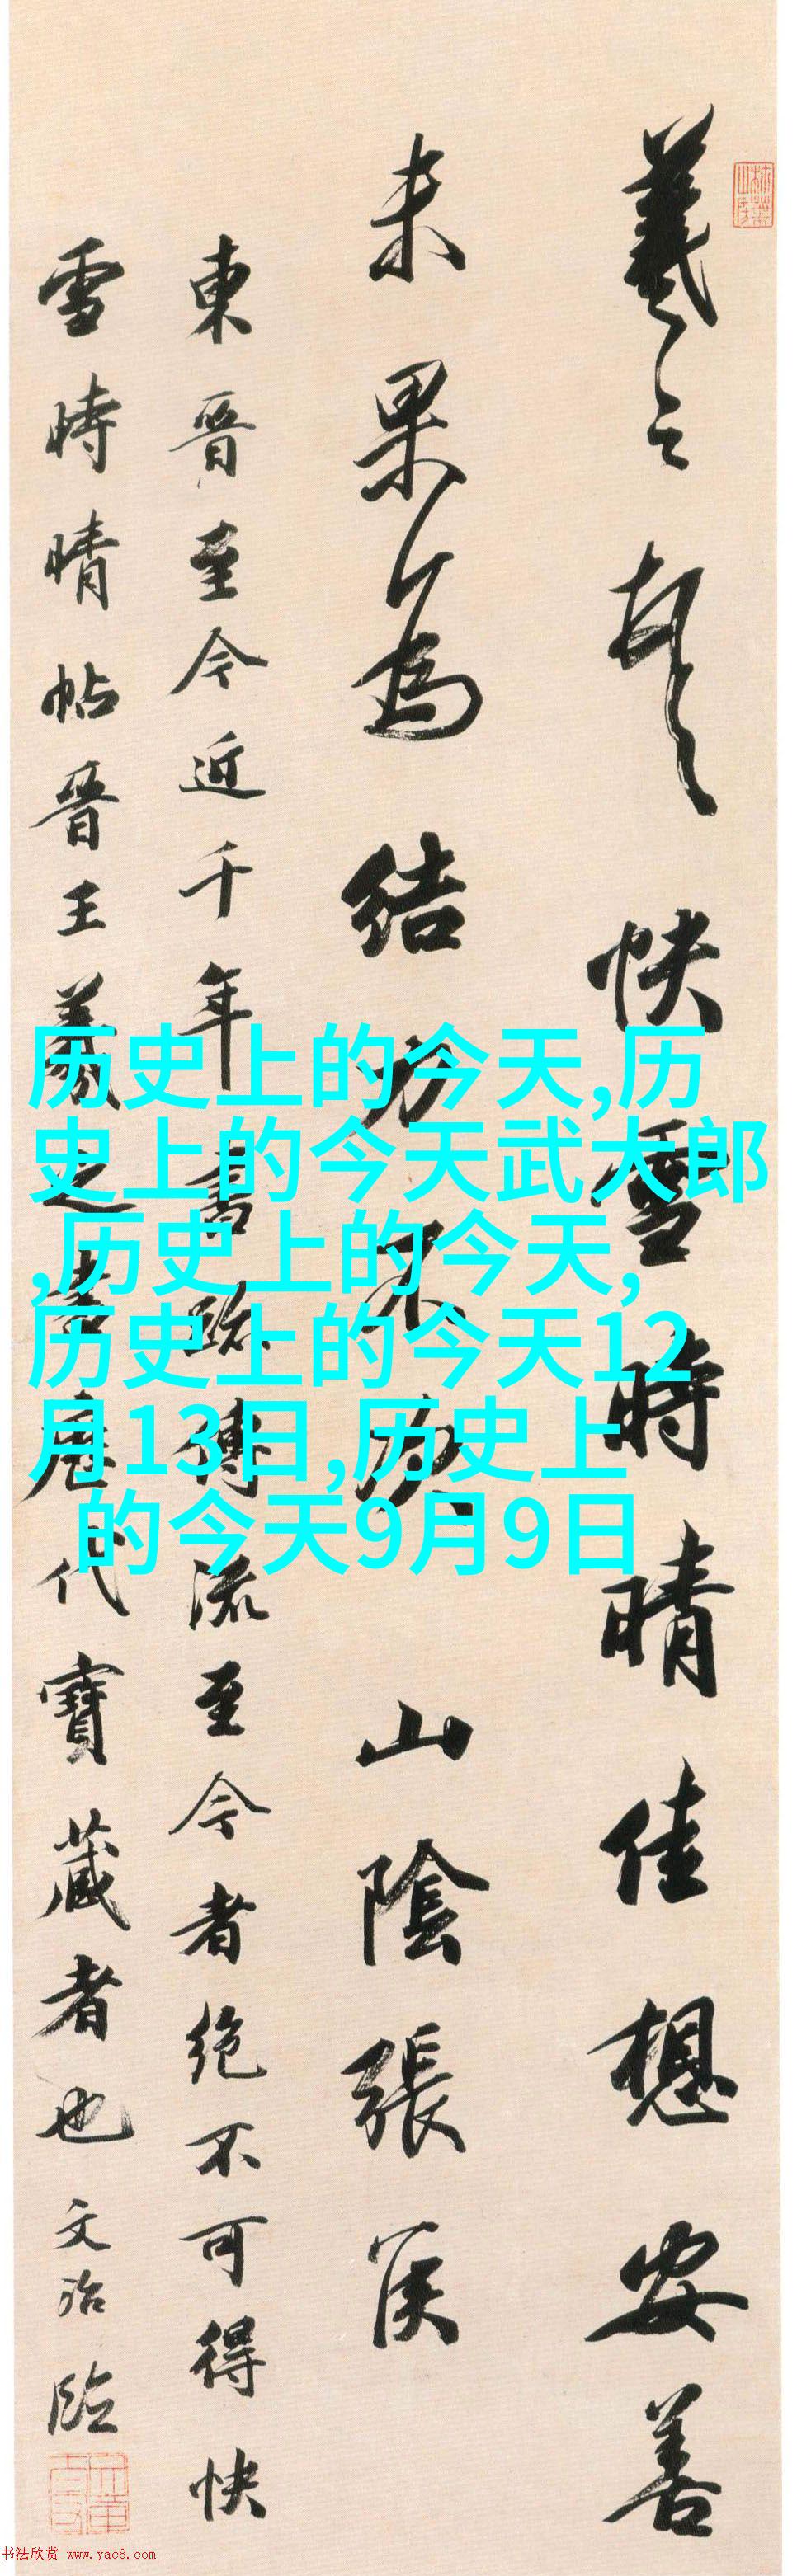 羲之頓首快雪時晴佳想安善
未果為結力不次 山陰張侯
東晉至今近千年書跡傳流至今者絕不可得快
雪時晴帖晉王羲之書歷代寶藏者也文治臨
历史上的今天,历
史上的今天武大郎
,历史上的今天,
历史上的今天12
月13日,历史上
的今天9月9日
书法欣赏 www.yac8.com